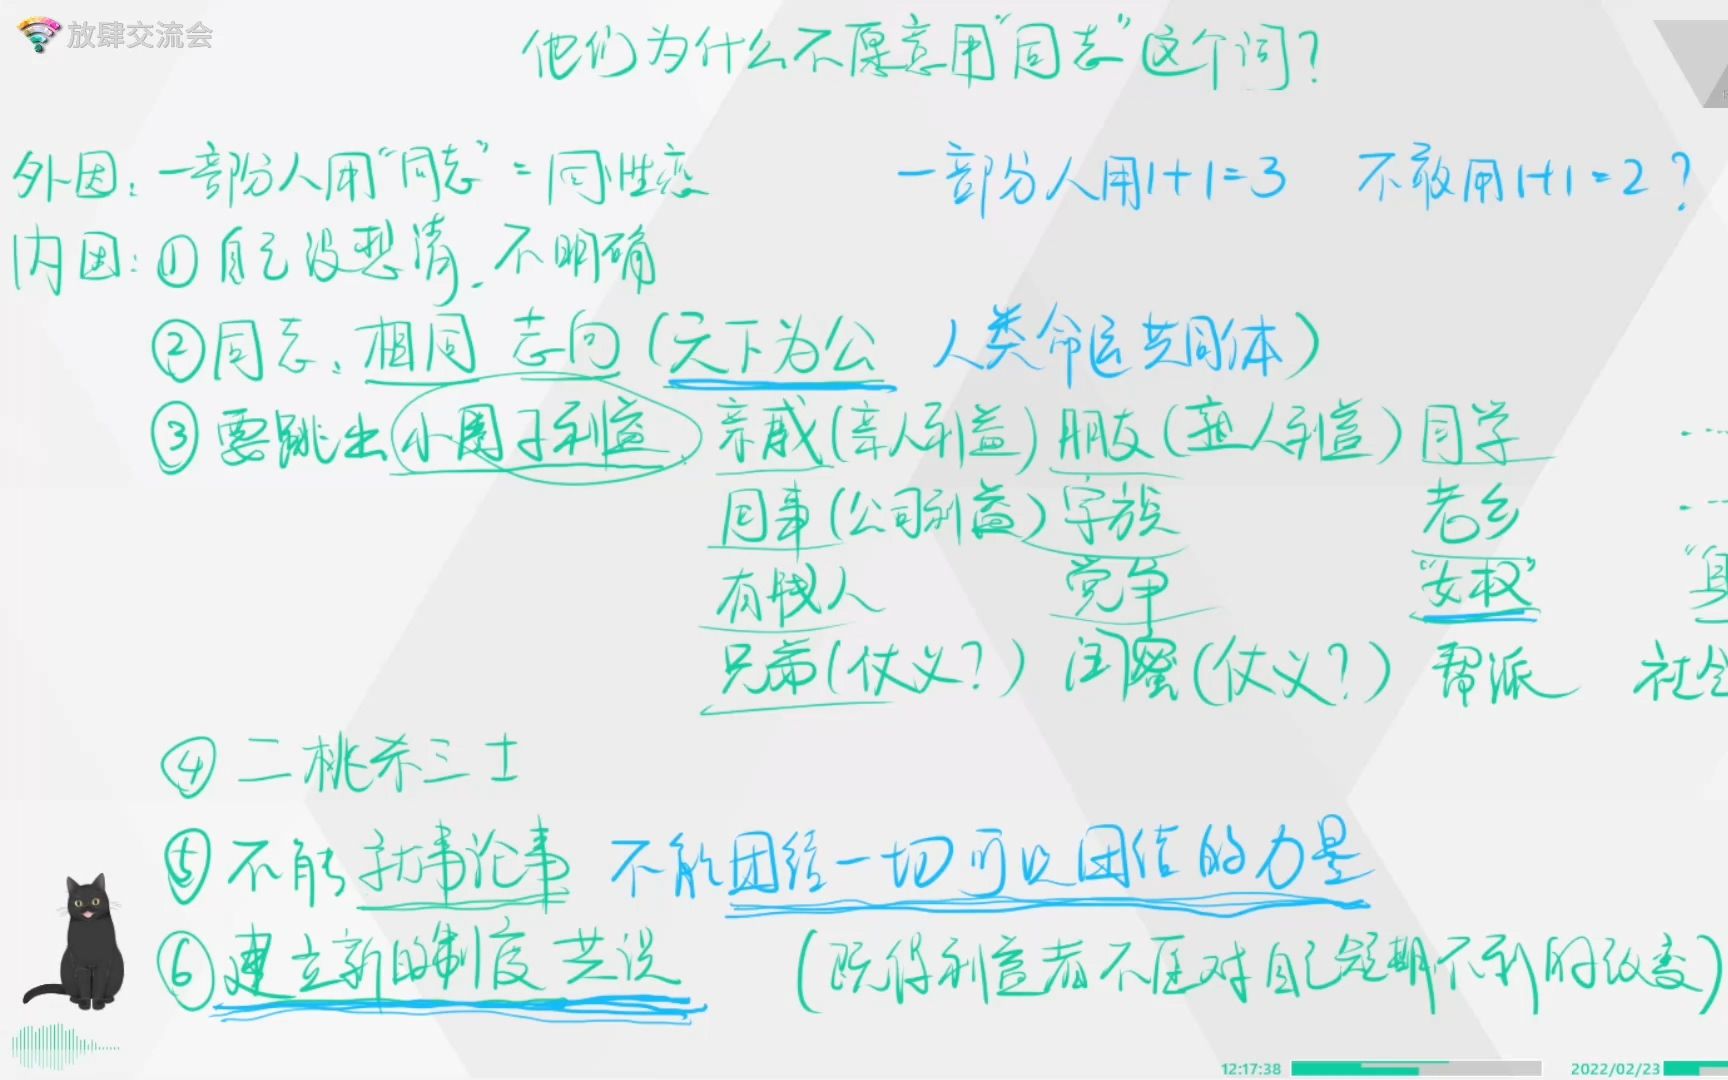 放肆交流会
他们为什么不愿意用“同志”这个词?
外因:一部分人用“同志”=同性恋 一部分人用1+1=3 不敢用1+1=2?
内因:①自己没想清.不明确
②同志:相同 志向(天下为公 人类命运共同体)
③要跳出小圈子利益. 亲戚(亲人利益) 朋友(熟人利益) 同学 ....
同事(公司利益) 宗族 老乡 ...
有钱人 党争 “女权”
兄弟(仗义?) 闺蜜(仗义?) 帮派 社会
④二桃杀三士
⑤不能就事论事 不能团结一切可以团结的力量
⑥建立新的制度 共识 (既得利益者不愿对自己短期不利的改变)
12:17:38 2022/02/23